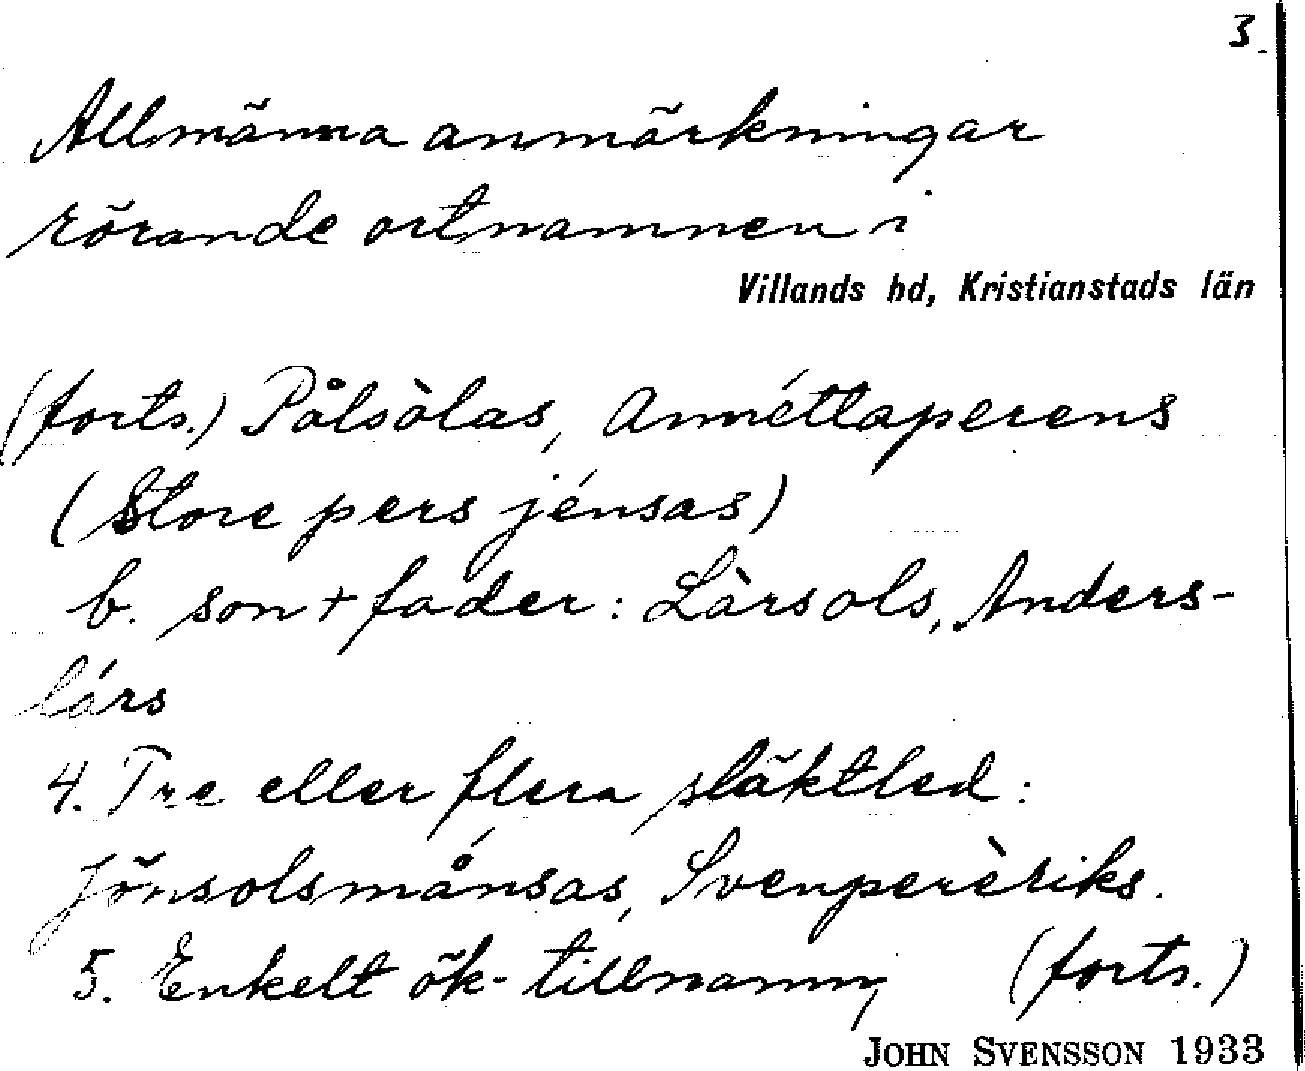 3
Allmänna anmärkningar
rörande ortnamnen i
Villands hd, Kristianstads län
(forts.) Pålsòlas, Annéttaperens
(Store pers jénsas)
b. son + fader: Làrsols, Anders-
lárs
4. Tre eller flera släktled:
Jönsolsmånsas, Svenperèriks.
5. Enkelt ök-tillnamn, (forts.)
JOHN SVENSSON 1933